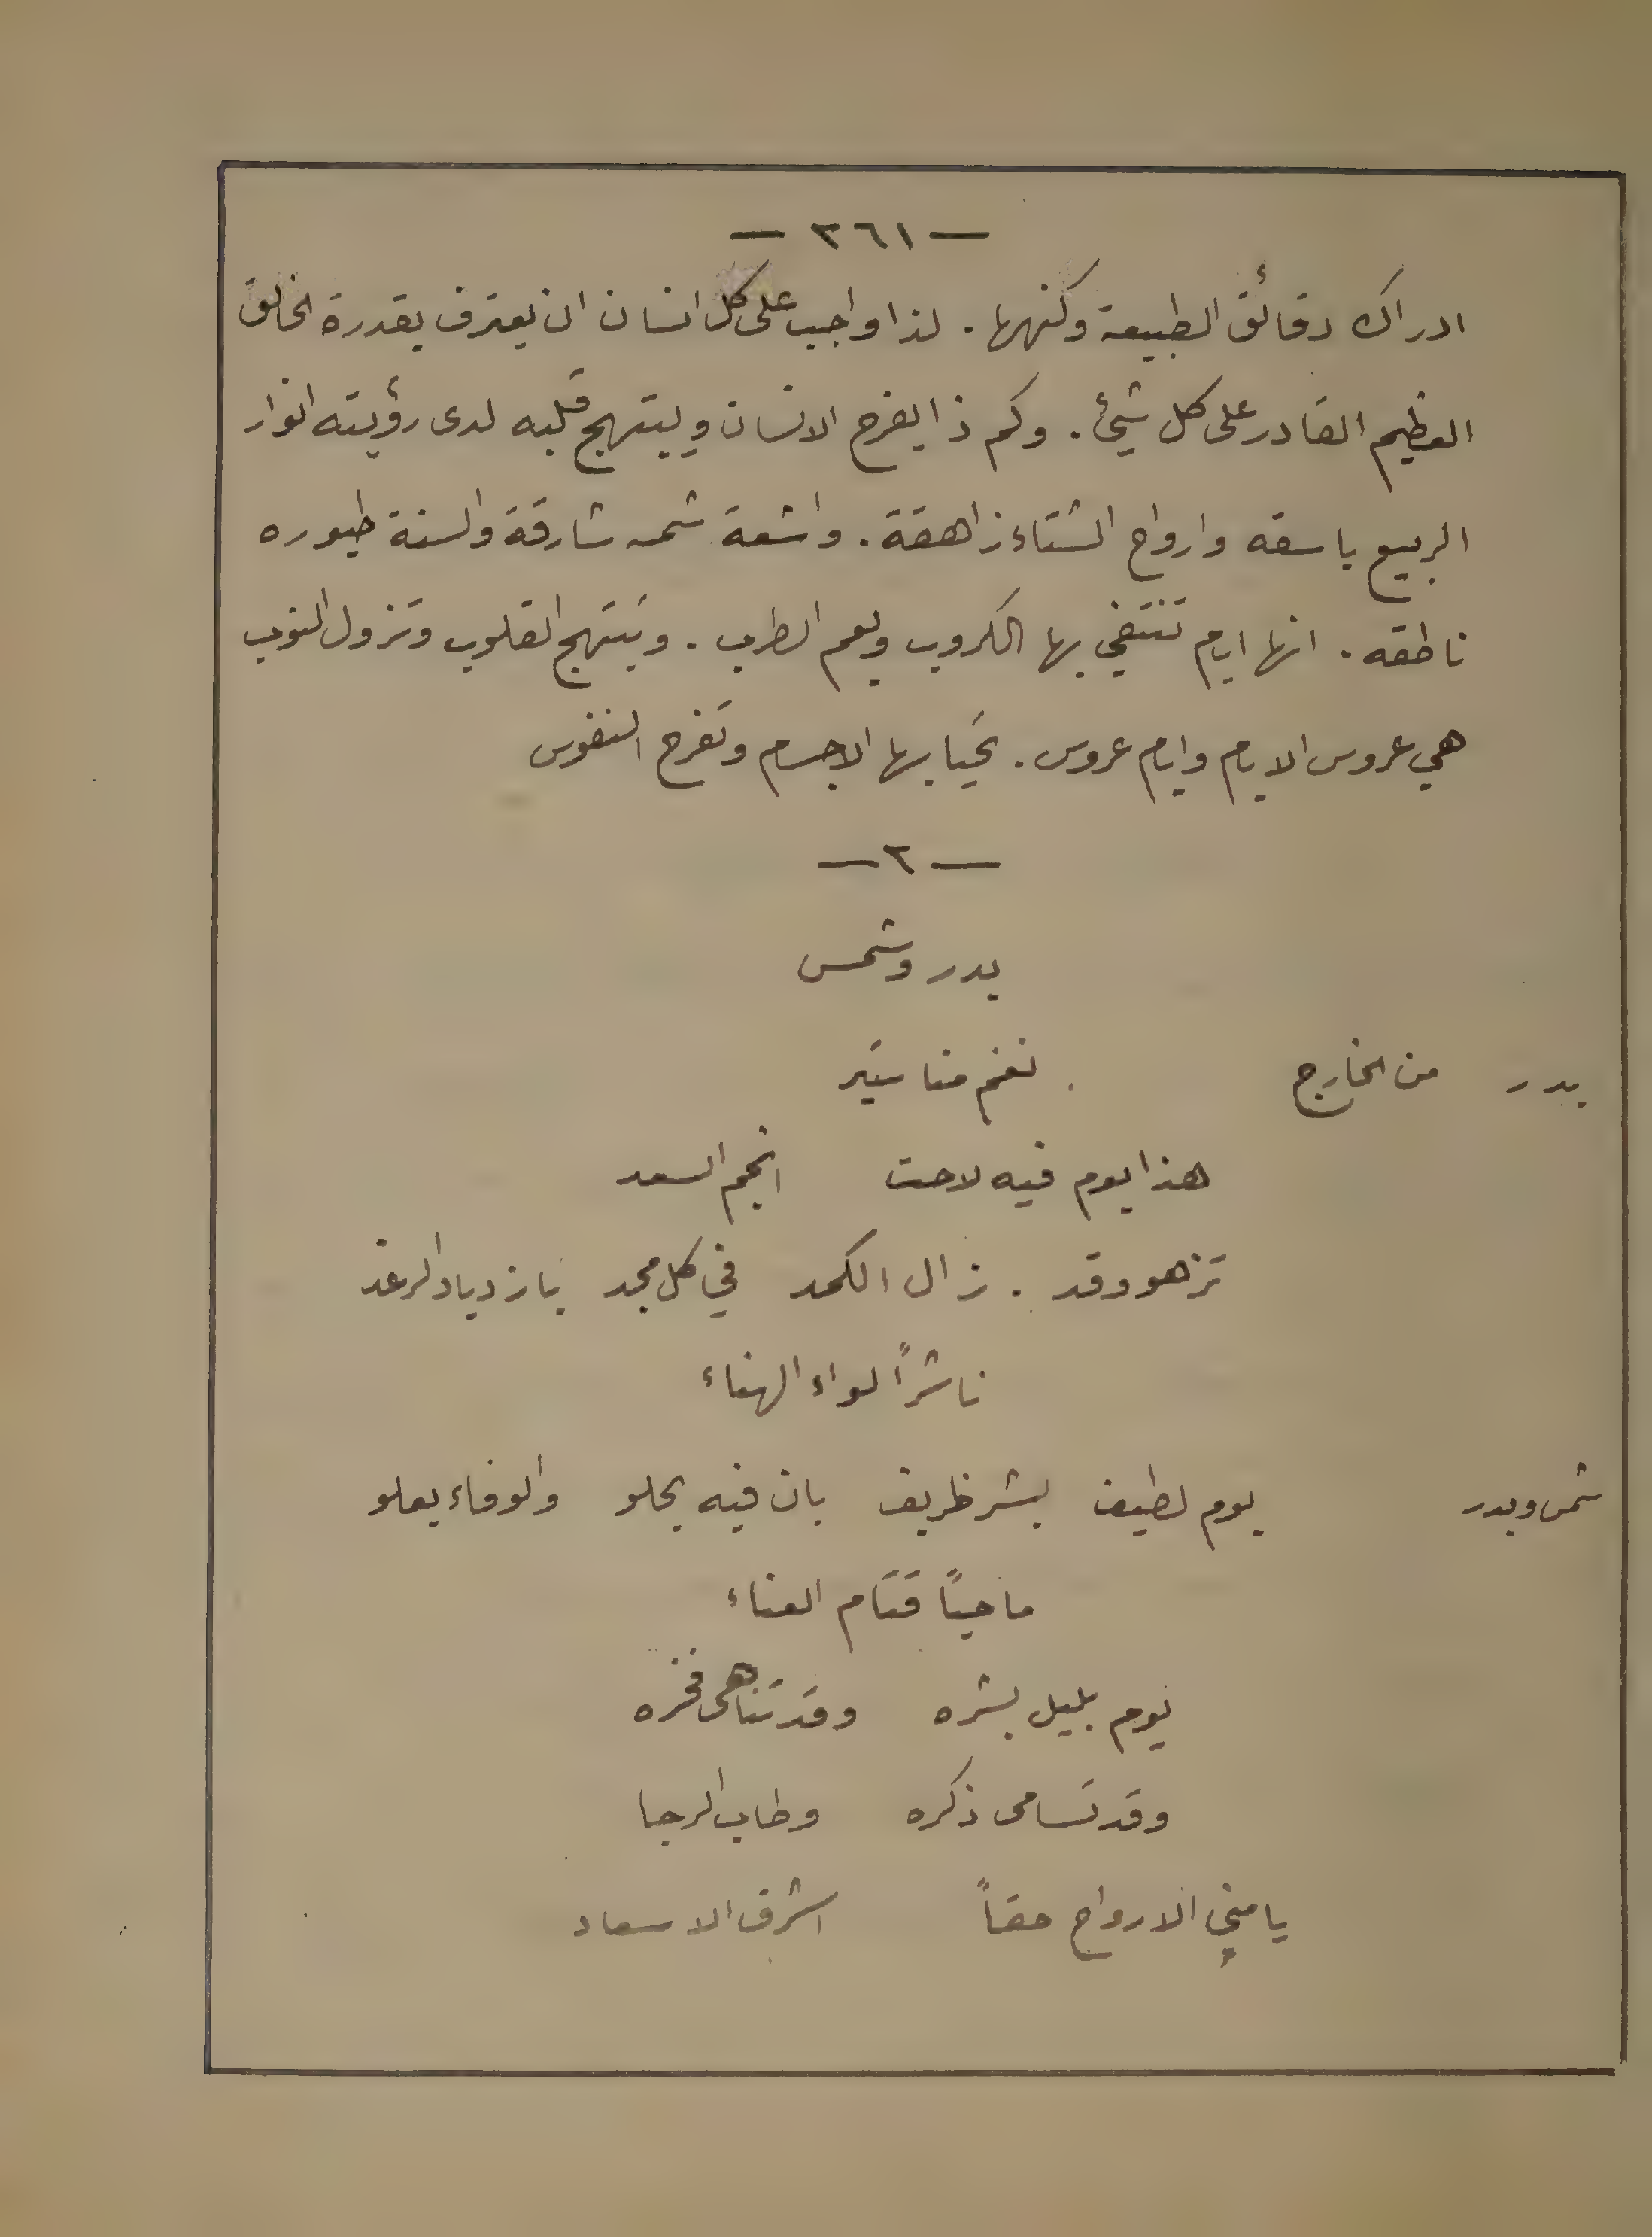 — ٣٦١ —
ادراك دقائق الطبيعة وكنهها . لذا واجب على كل انسان ان يعترف بقدرة الخالق
العظيم القادر على كل شيئ . وكم ذا يفرح الانسان ويبتهج قلبه لدى رؤيته انوار
الربيع باسقه وارواح الشتاء زاهقة . واشعة شمسه شارقة والسنة طيوره
ناطقه . انها ايام تنتفي بها الكروب ويعم الطرب . وتبتهج القلوب وتزول النوب
هي عروس الايام وايام عروس . تحيا بها الاجسام وتفرح النفوس
— ٢ —
بدر وشمس
بدر من الخارج . نغم مناسير
هذا يوم فيه لاحت انجم السعد
تزهو وقد . زال الكمد في كل مجد بازدياد الرغد
ناشراً لواء الهناء
شمس وبدر يوم لطيف بشر ظريف بان فيه يحلو والوفاء يعلو
ماحياً قتام العناء
يوم بليل بشره وقد تناهى فخره
وقد تسامى ذكره وطاب الرجا
يا منى الارواح حقاً اشرف الاسعاد